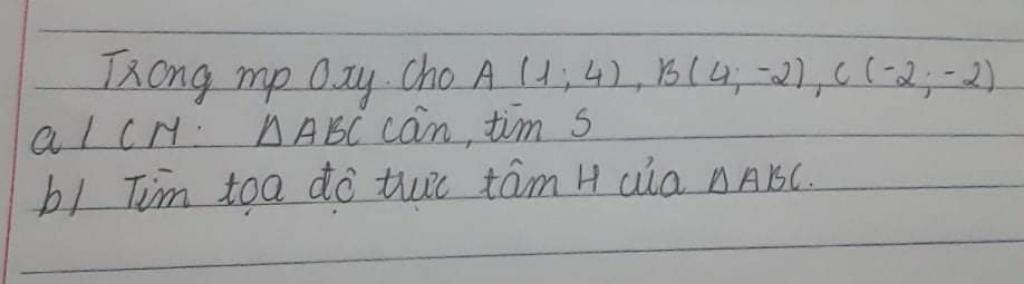 Trong mp Oxy. Cho A (1; 4), B(4; -2), C(-2; -2)
a/ CM: ΔABC cân, tìm S
b/ Tìm tọa độ trực tâm H của ΔABC.